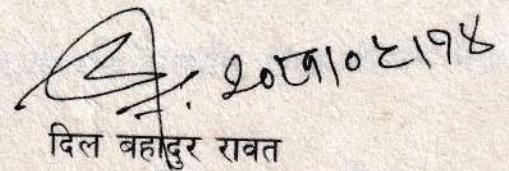 २०७५।०९।१४
दिल बहादुर रावत